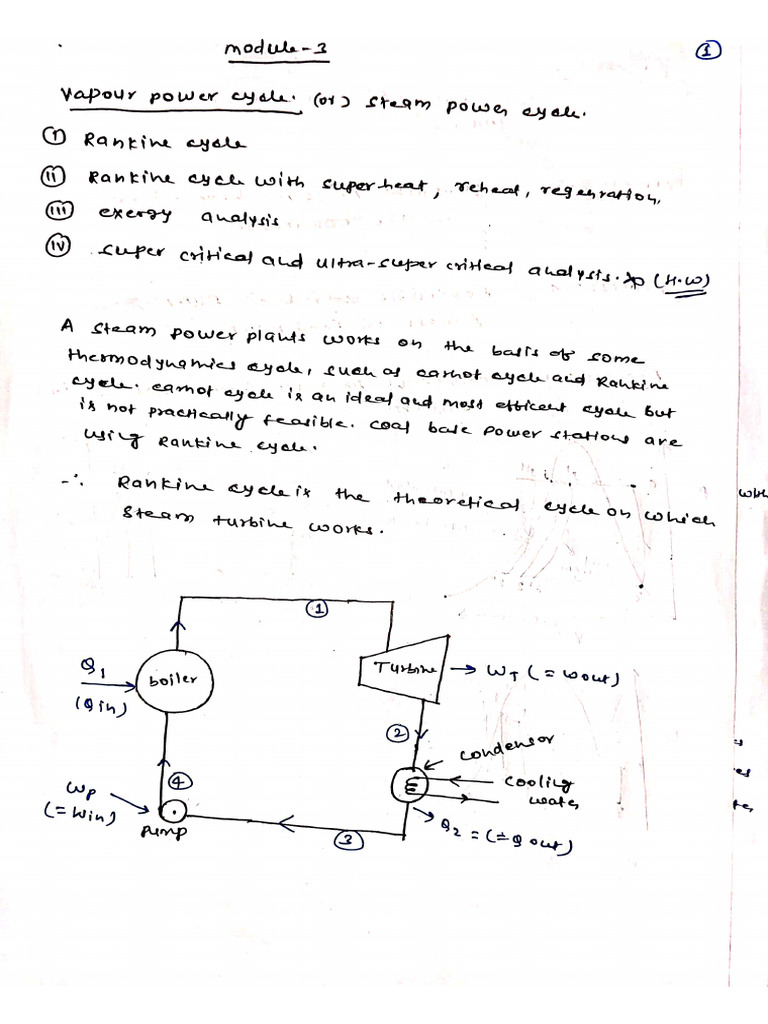 module-3
①
Vapour power cycle. (or) steam power cycle.
(i) Rankine cycle
(ii) Rankine cycle with superheat, reheat, regenration.
(iii) exergy analysis
(iv) super critical and ultra-super critical analysis. (H.W)
A steam power plants works on the basis of some
thermodynamics cycle, such as carnot cycle and Rankine
cycle. carnot cycle is an ideal and most efficent cycle but
is not practically feasible. coal base power stations are
using Rankine cycle.
∴ Rankine cycle is the theoretical cycle on which
steam turbine works.
①
Q1
(Qin)
boiler
Turbine
WT (= Wout)
②
condensor
cooling
water
④
Wp
(= Win)
pump
③
Q2 = (= Qout)